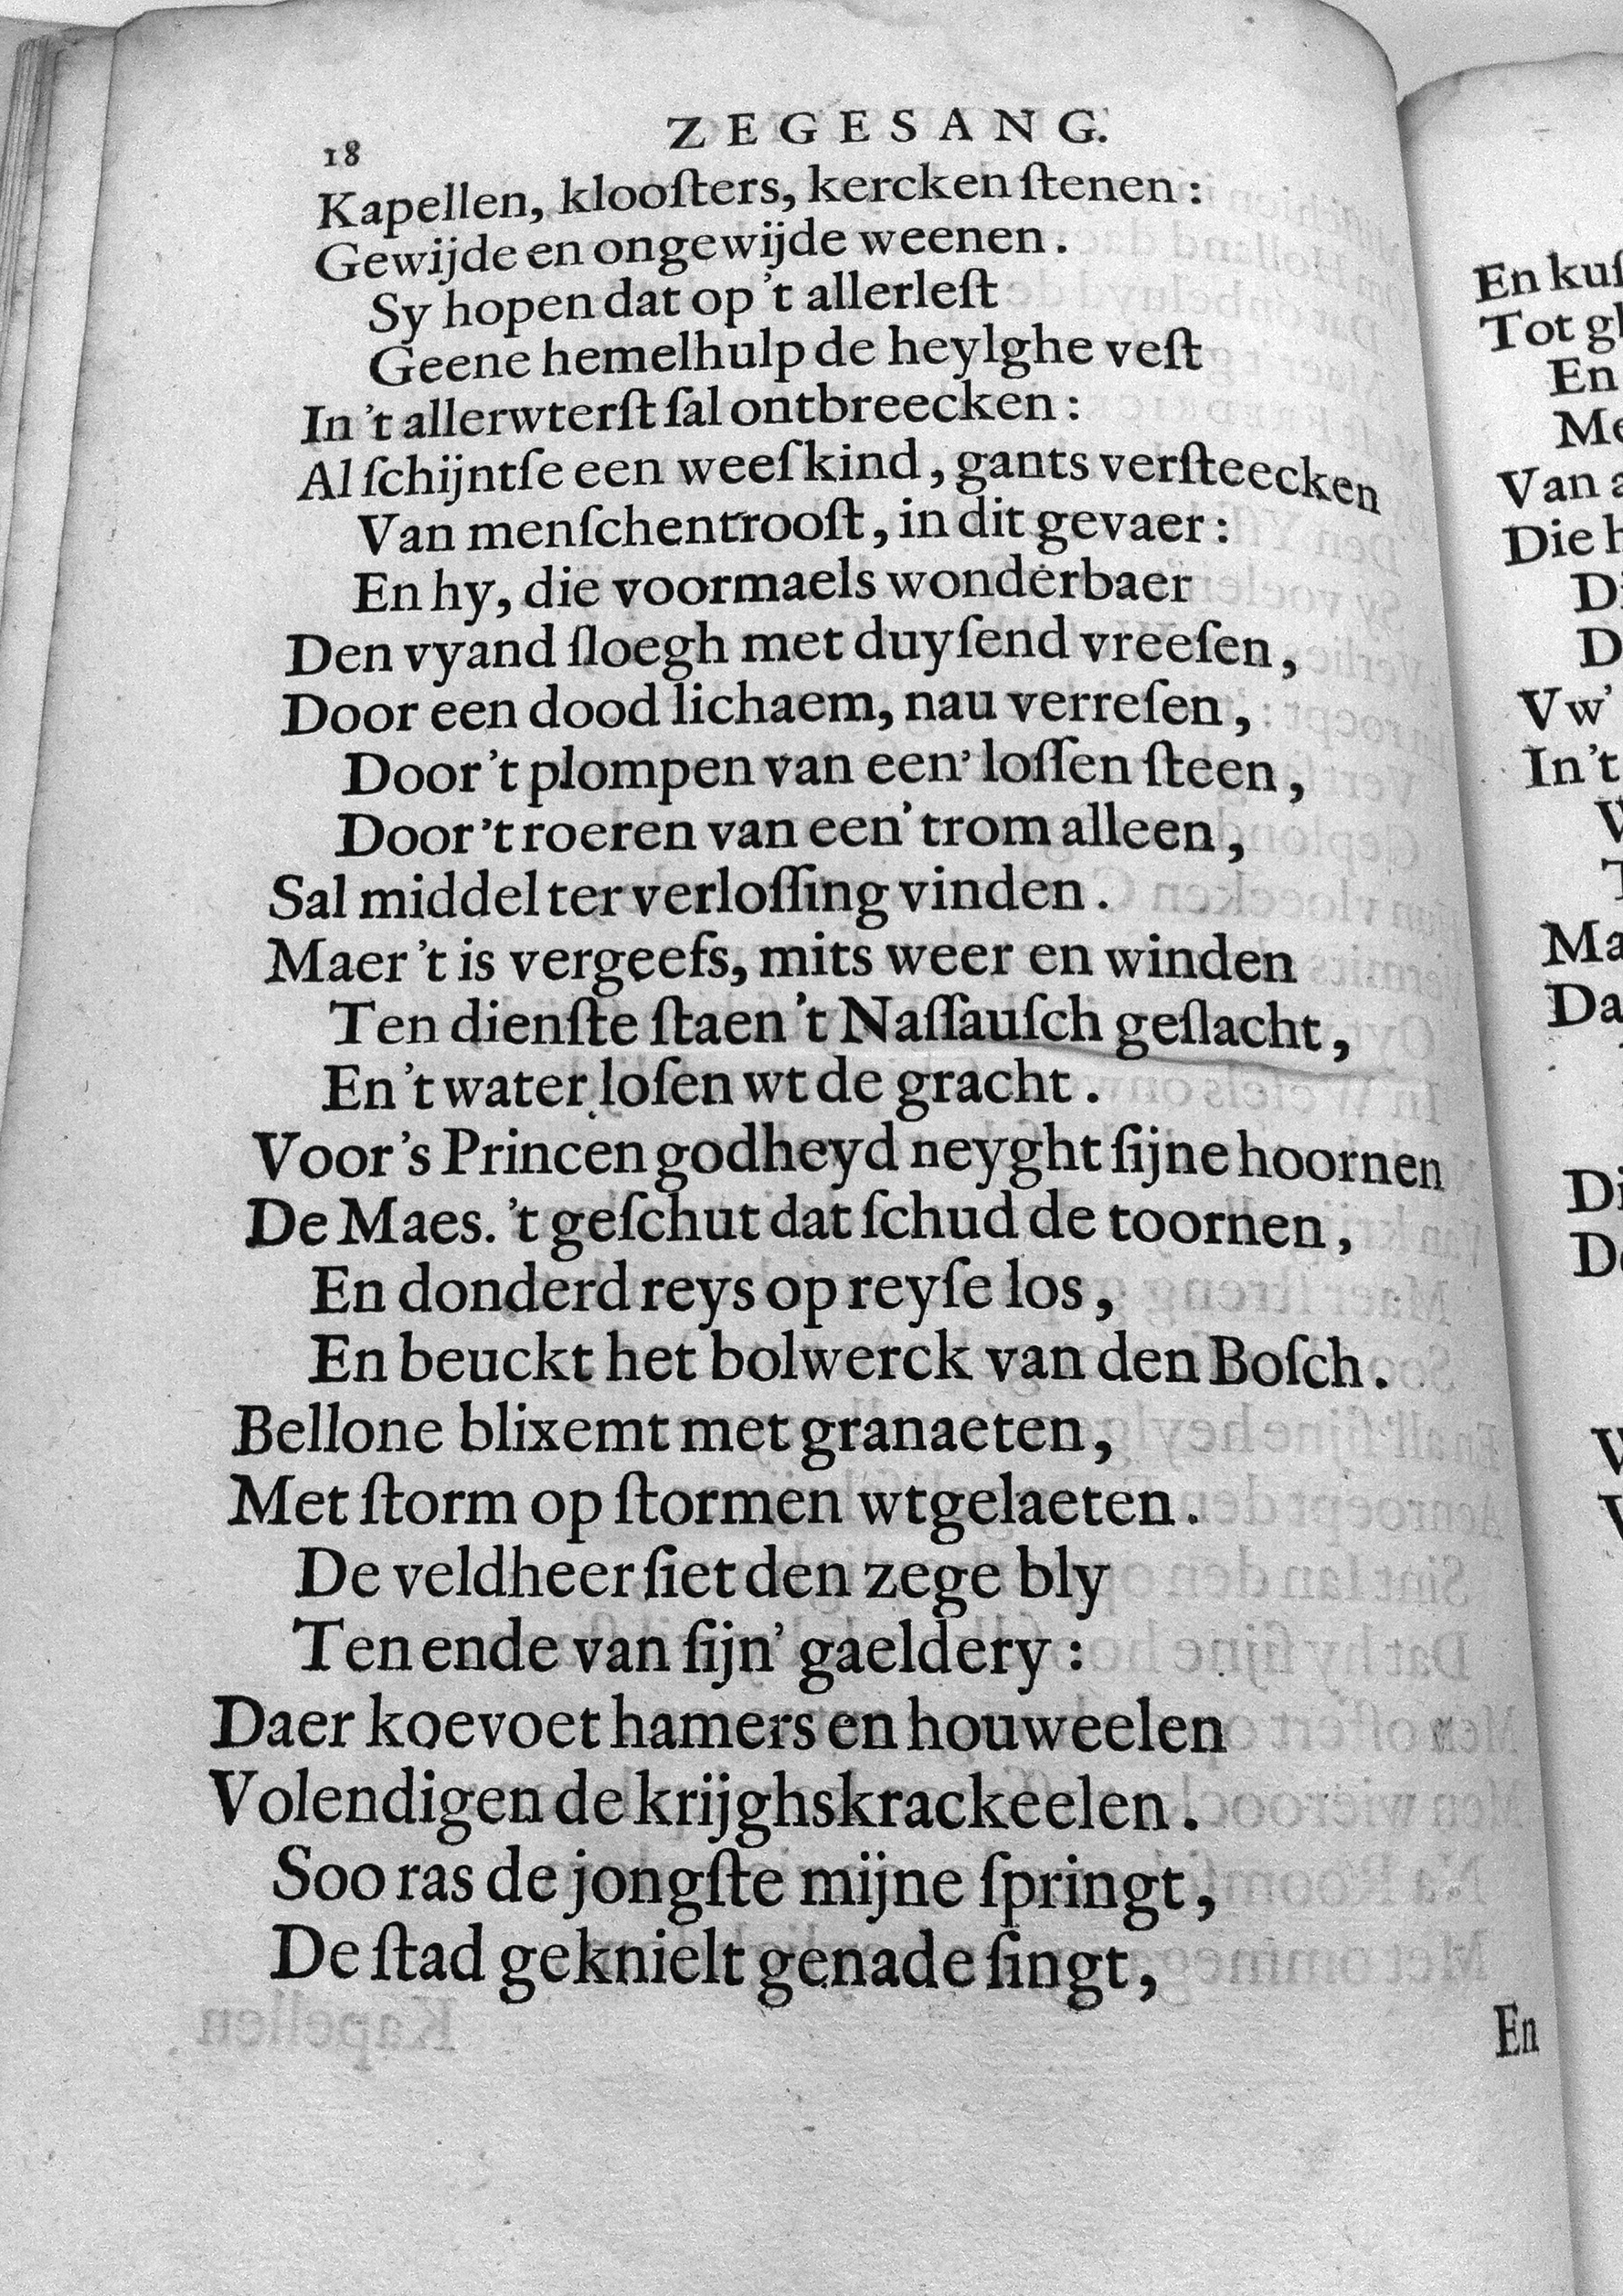 18
ZEGESANG.
Kapellen, klooſters, kercken ſtenen:
Gewijde en ongewijde weenen.
Sy hopen dat op 't allerleſt
Geene hemelhulp de heylghe veſt
In 't allerwterſt ſal ontbreecken:
Al ſchijntſe een weeſkind, gants verſteecken
Van menſchentrooſt, in dit gevaer:
En hy, die voormaels wonderbaer
Den vyand ſloegh met duyſend vreeſen,
Door een dood lichaem, nau verreſen,
Door 't plompen van een' loſſen ſteen,
Door 't roeren van een' trom alleen,
Sal middel ter verloſſing vinden.
Maer 't is vergeefs, mits weer en winden
Ten dienſte ſtaen 't Naſſauſch geſlacht,
En 't water loſen wt de gracht.
Voor 's Princen godheyd neyght ſijne hoornen
De Maes. 't geſchut dat ſchud de toornen,
En donderd reys op reyſe los,
En beuckt het bolwerck van den Boſch.
Bellone blixemt met granaeten,
Met ſtorm op ſtormen wtgelaeten.
De veldheer ſiet den zege bly
Ten ende van ſijn' gaeldery:
Daer koevoet hamers en houweelen
Volendigen de krijghskrackeelen.
Soo ras de jongſte mijne ſpringt,
De ſtad geknielt genade ſingt,
En
En
Tot
En
Van
Die
Vw'
In 't